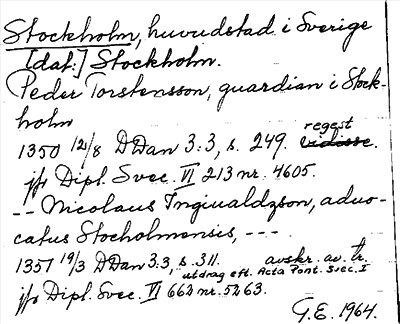 Stockholm, huvudstad i Sverige
[dat:] Stockholm.
Peder Torstensson, guardian i Stock-
holm
1350 12/8 DDan 3:3, s. 249. regest
jfr Dipl. Svec. VI 213 nr. 4605.
-- Nicolaus Ingiualdzson, aduo-
catus Stocholmensis, ---.
1351 19/3 DDan 3:3, s. 311. avskr. av tr.
utdrag eft. Acta Pont. Svec. I
jfr Dipl. Svec. VI 662 nr. 5263.
G.E. 1964.